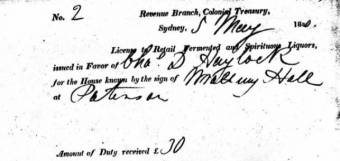 No. 2 Revenue Branch, Colonial Treasury,
Sydney, 5 May 18
License to Retail Fermented and Spirituous Liquors,
issued in Favor of Chas. D Haylock
for the House known by the sign of Hall
at Paterson
Amount of Duty received £ 30